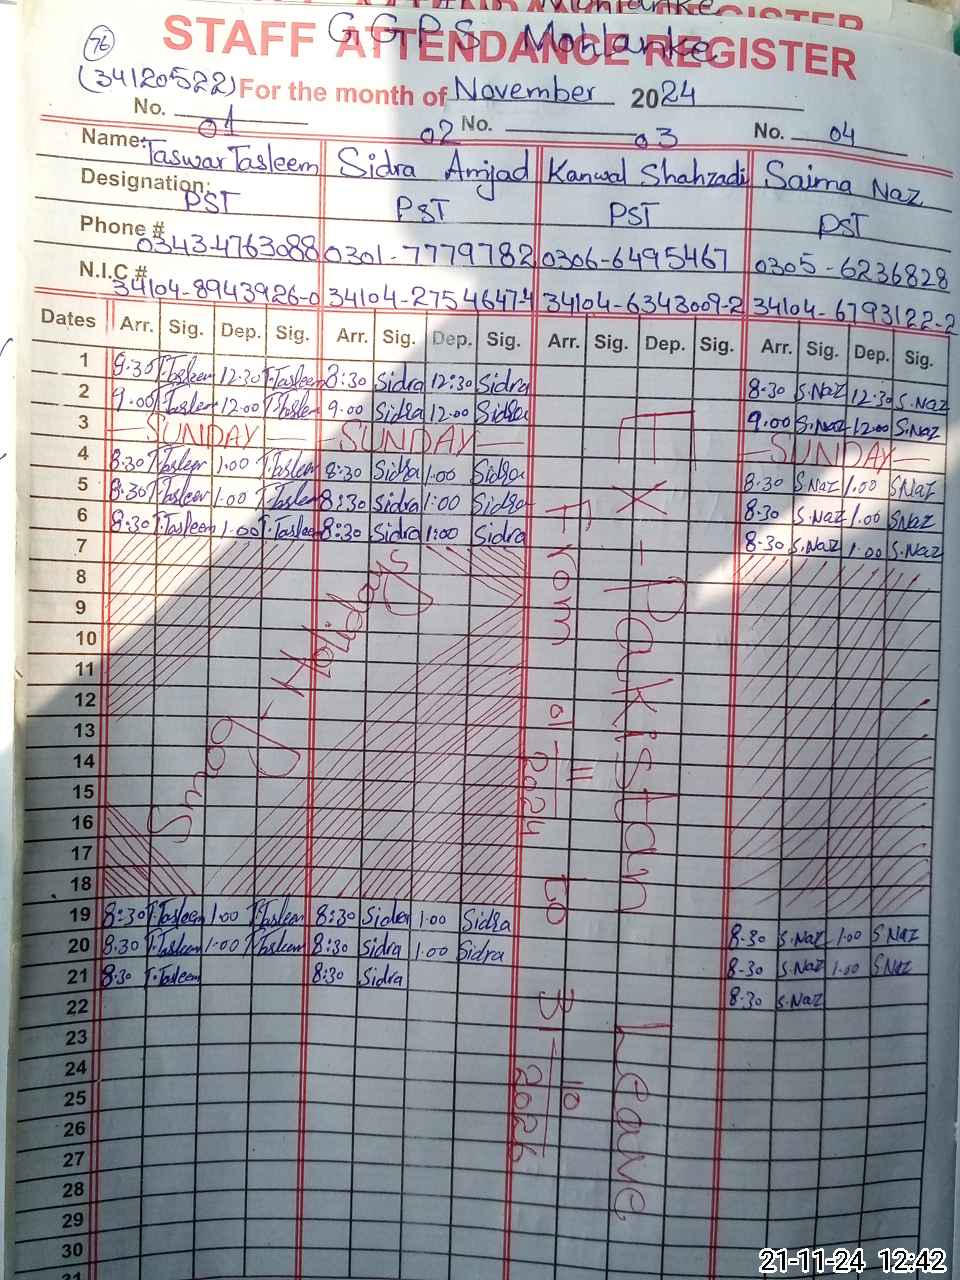 G G P S Mohlanke
STAFF ATTENDANCE REGISTER
76
(34120522) For the month of November 2024
No. 01 02 No. 03 No. 04
Name: Taswar Tasleem Sidra Amjad Kanwal Shahzadi Saima Naz
Designation: PST PST PST PST
Phone # 0343-4763088 0301-7779782 0306-6495467 0305-6236828
N.I.C # 34104-8943926-0 34104-2754647-4 34104-6343009-2 34104-6793122-2
Dates Arr. Sig. Dep. Sig. Arr. Sig. Dep. Sig. Arr. Sig. Dep. Sig. Arr. Sig. Dep. Sig.
1 T.Tasleem 12:30 T.Tasleem 8:30 Sidra 12:30 Sidra 8.30 S.Naz 12.30 S.Naz
2 9.00 T.Tasleem 12.00 T.Tasleem 9.00 Sidra 12.00 Sidra 9.00 S.Naz 12.00 S.Naz
3 — SUNDAY — — SUNDAY — — SUNDAY —
4 8.30 T.Tasleem 1.00 T.Tasleem 8:30 Sidra 1.00 Sidra 8.30 S.Naz 1.00 S.Naz
5 8.30 T.Tasleem 1.00 T.Tasleem 8:30 Sidra 1:00 Sidra 8.30 S.Naz 1.00 S.Naz
6 8:30 T.Tasleem 1.00 T.Tasleem 8:30 Sidra 1:00 Sidra 8.30 S.Naz 1.00 S.Naz
7
8
9
10
11
12
13
14
15
16
17
18
Smog Holidays
19 8:30 T.Tasleem 1.00 T.Tasleem 8:30 Sidra 1.00 Sidra 8.30 S.Naz 1.00 S.Naz
20 8.30 T.Tasleem 1.00 T.Tasleem 8:30 Sidra 1.00 Sidra 8.30 S.Naz 1.00 S.Naz
21 8.30 T.Tasleem 8:30 Sidra 8.30 S.Naz
22
23
24
25
26
27
28
29
30
31
EX-Pakistan Leave
From 01/11/2024 to 31/10/2026
21-11-24 12:42